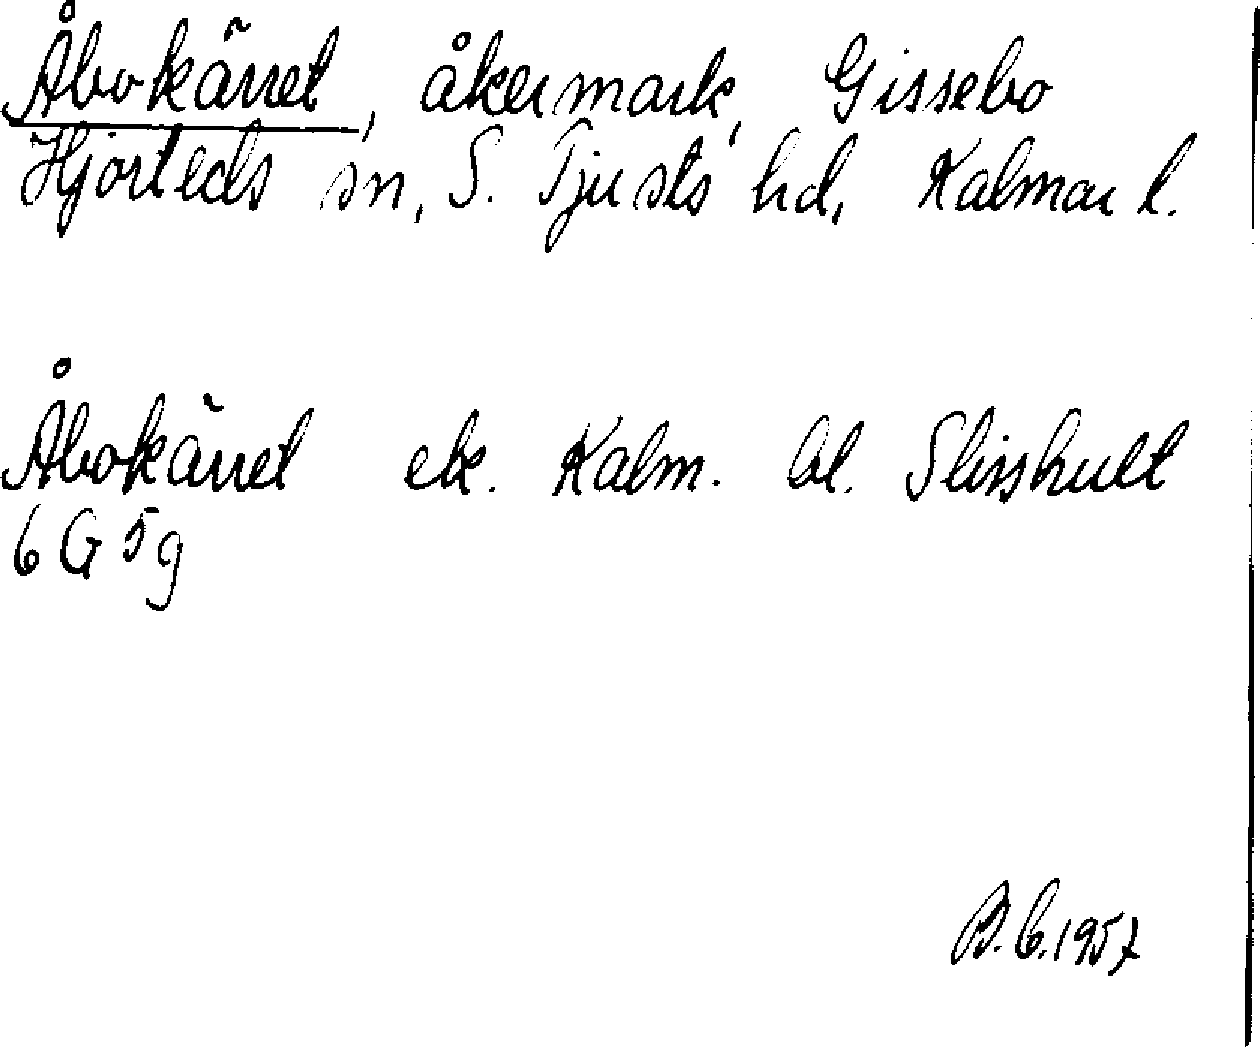 Åbokärret, åkermark, Gissebo
Hjorteds sn, S. Tjusts hd, Kalmar l.
Åbokärret ek. Kalm. bl. Slisshult
6 G 5 g
B.C. 1957